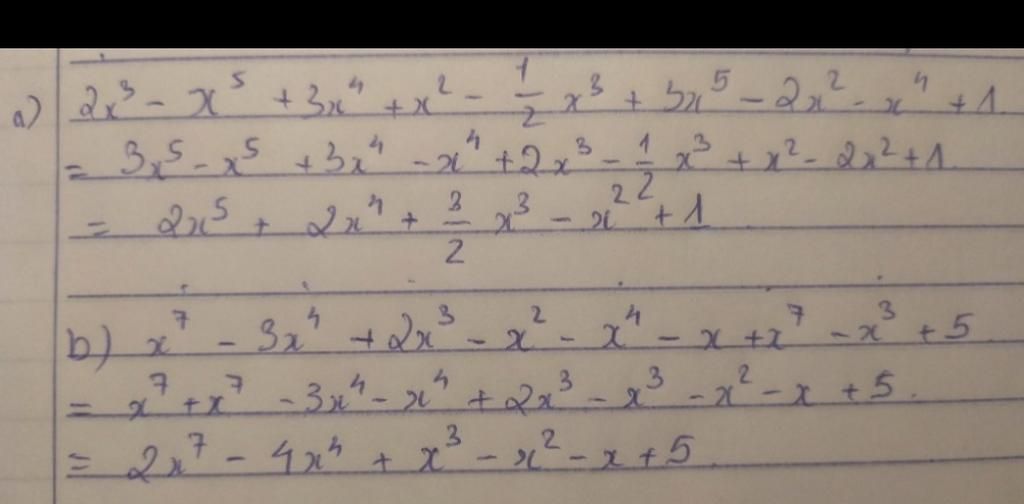 a) 2x³ - x⁵ + 3x⁴ + x² - 1/2 x³ + 3x⁵ - 2x² - x⁴ + 1
= 3x⁵ - x⁵ + 3x⁴ - x⁴ + 2x³ - 1/2 x³ + x² - 2x² + 1
= 2x⁵ + 2x⁴ + 3/2 x³ - x² + 1
b) x⁷ - 3x⁴ + 2x³ - x² - x⁴ - x + x⁷ - x³ + 5
= x⁷ + x⁷ - 3x⁴ - x⁴ + 2x³ - x³ - x² - x + 5.
= 2x⁷ - 4x⁴ + x³ - x² - x + 5